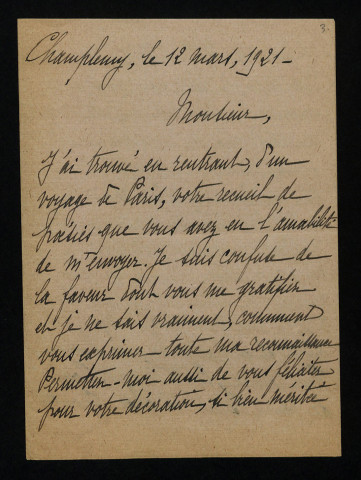 3.
Champlemy, le 12 mars, 1921 -
Monsieur,
J'ai trouvé en rentrant, d'un
voyage de Paris, votre recueil de
poésies que vous avez eu l'amabilité
de m'envoyer. Je suis confuse de
la faveur dont vous me gratifiez
et je ne sais vraiment, comment
vous exprimer toute ma reconnaissance
Permettez-moi aussi de vous féliciter
pour votre décoration, si bien méritée